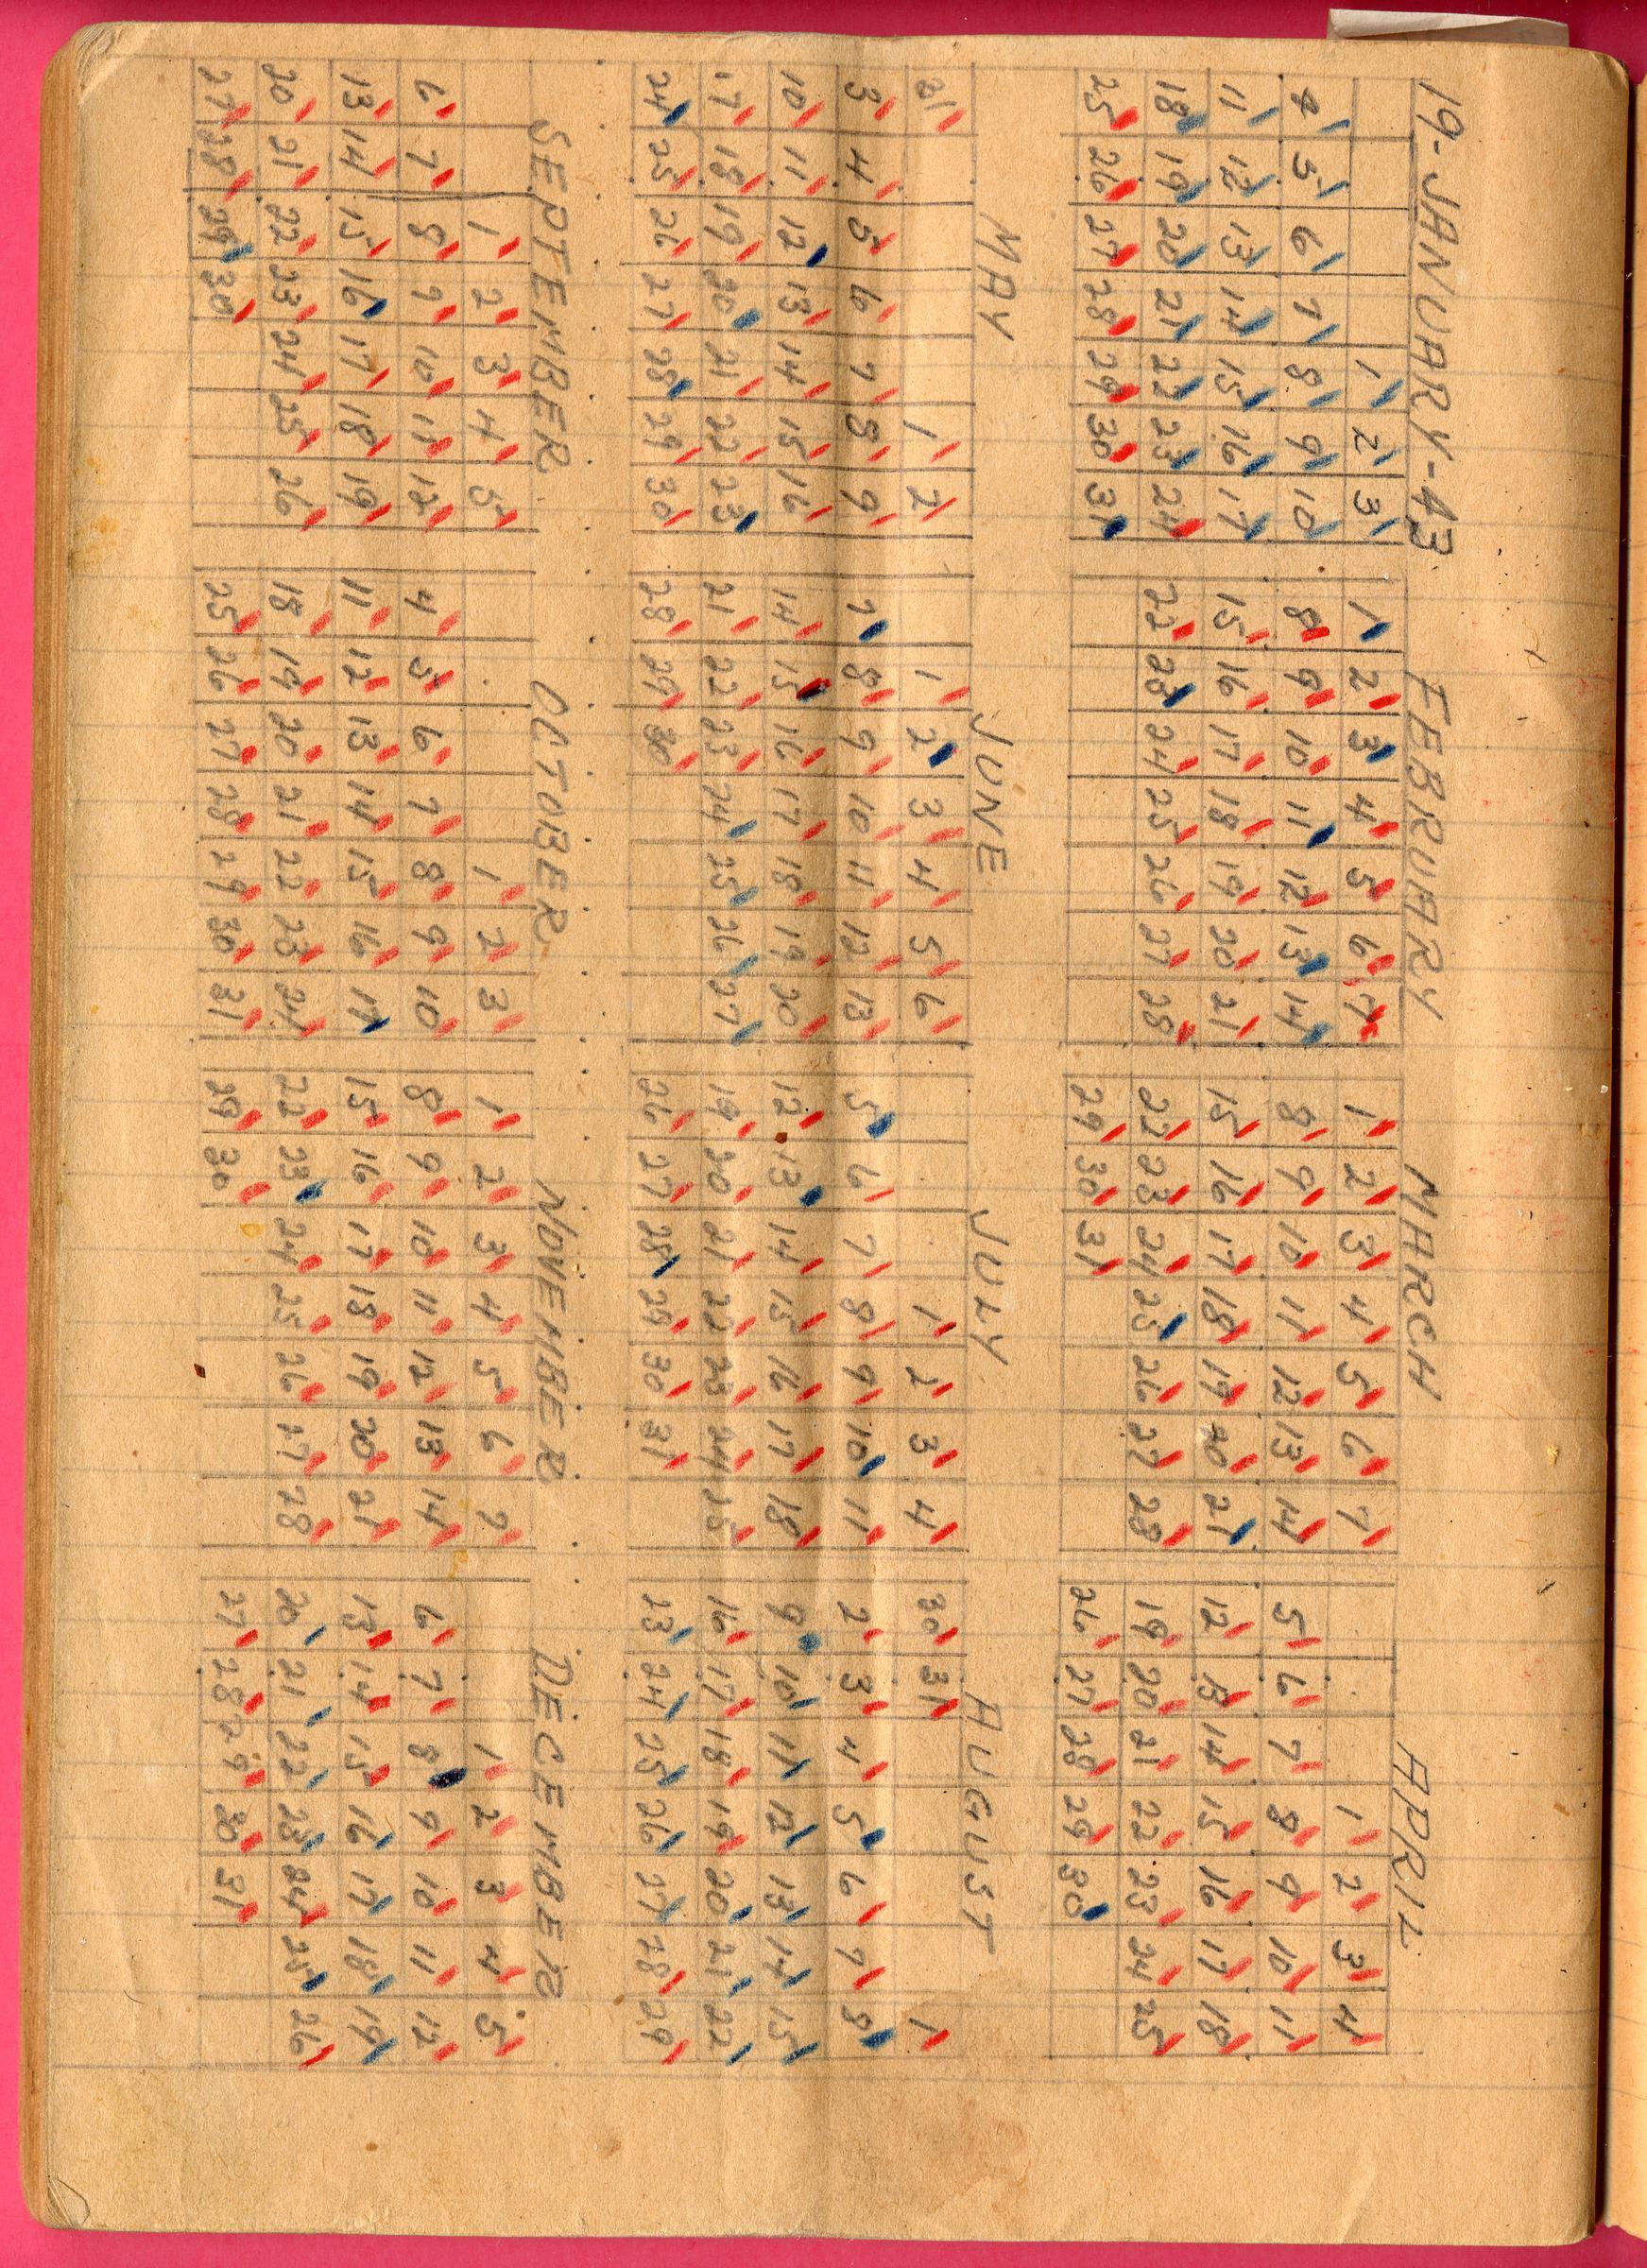 19-JANUARY-43 FEBRUARY MARCH APRIL
1 2 3 1 2 3 4 5 6 7 1 2 3 4 5 6 7 1 2 3 4
4 5 6 7 8 9 10 8 9 10 11 12 13 14 8 9 10 11 12 13 14 5 6 7 8 9 10 11
11 12 13 14 15 16 17 15 16 17 18 19 20 21 15 16 17 18 19 20 21 12 13 14 15 16 17 18
18 19 20 21 22 23 24 22 23 24 25 26 27 28 22 23 24 25 26 27 28 19 20 21 22 23 24 25
25 26 27 28 29 30 31 29 30 31 26 27 28 29 30
MAY JUNE JULY AUGUST
31 1 2 1 2 3 4 5 6 1 2 3 4 30 31 1
3 4 5 6 7 8 9 7 8 9 10 11 12 13 5 6 7 8 9 10 11 2 3 4 5 6 7 8
10 11 12 13 14 15 16 14 15 16 17 18 19 20 12 13 14 15 16 17 18 9 10 11 12 13 14 15
17 18 19 20 21 22 23 21 22 23 24 25 26 27 19 20 21 22 23 24 25 16 17 18 19 20 21 22
24 25 26 27 28 29 30 28 29 30 26 27 28 29 30 31 23 24 25 26 27 28 29
SEPTEMBER OCTOBER NOVEMBER DECEMBER
1 2 3 4 5 1 2 3 1 2 3 4 5 6 7 1 2 3 4 5
6 7 8 9 10 11 12 4 5 6 7 8 9 10 8 9 10 11 12 13 14 6 7 8 9 10 11 12
13 14 15 16 17 18 19 11 12 13 14 15 16 17 15 16 17 18 19 20 21 13 14 15 16 17 18 19
20 21 22 23 24 25 26 18 19 20 21 22 23 24 22 23 24 25 26 27 28 20 21 22 23 24 25 26
27 28 29 30 25 26 27 28 29 30 31 29 30 27 28 29 30 31